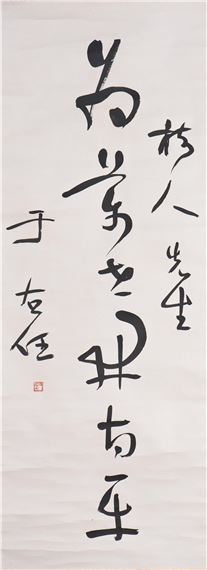 樹人先生
為萬世開太平
于右任